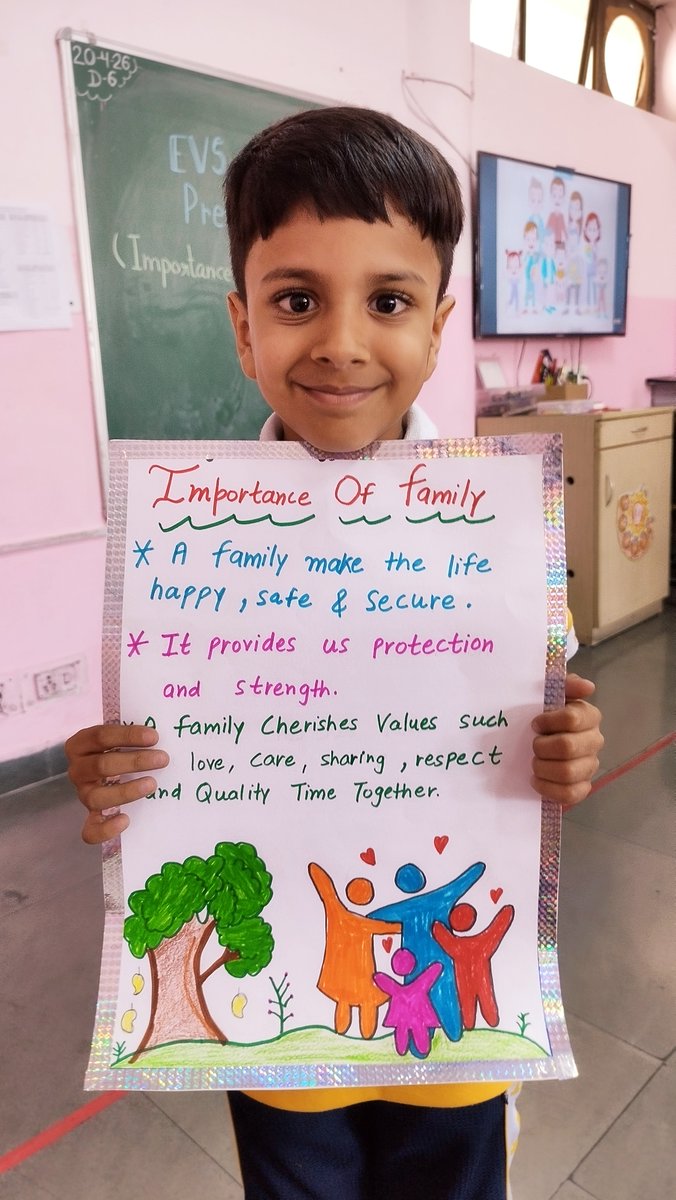 20-4-26
D-6
EVS
(Importance
Importance Of family
* A family make the life
happy, safe & secure.
* It provides us protection
and strength.
A family Cherishes Values such
love, care, sharing, respect
and Quality Time Together.